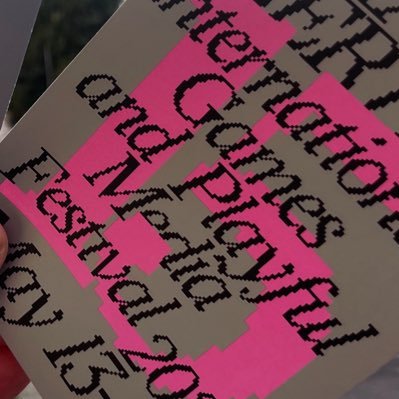 ER
Internation
Games
and Playful
Media
Festival 20
May 13-